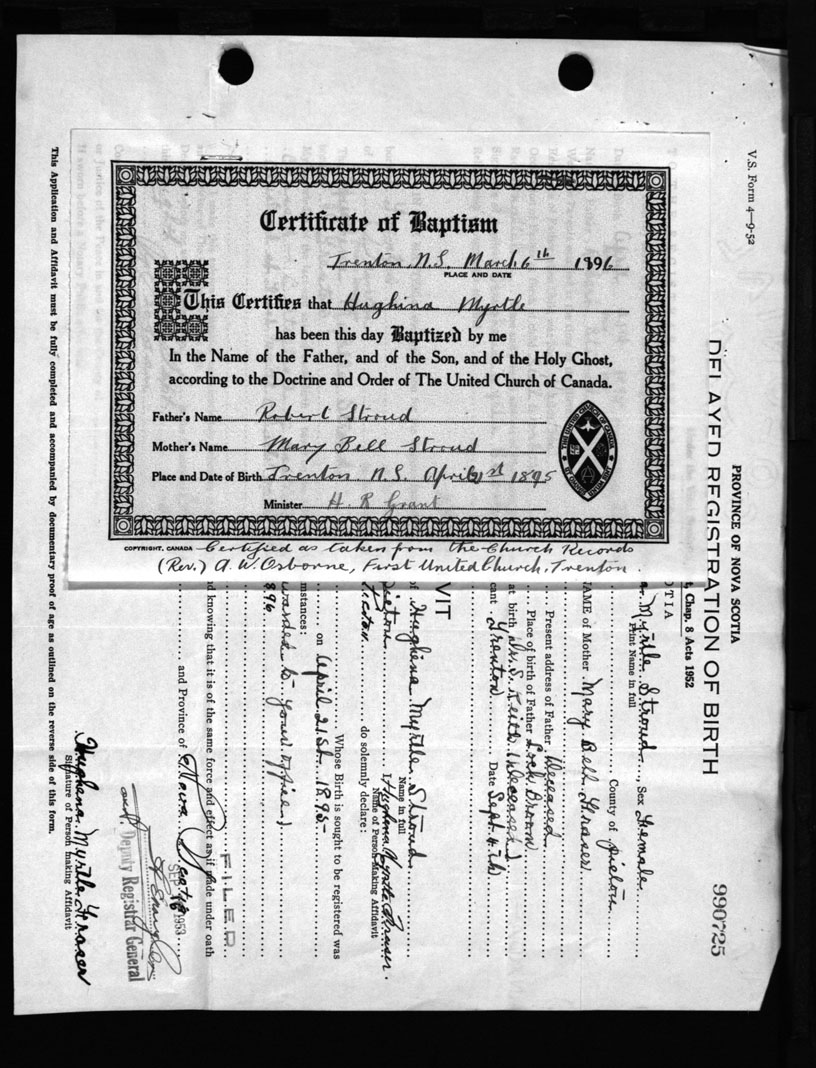 Certificate of Baptism
Trenton, N.S. March 6th 1896
PLACE AND DATE
This Certifies that Hughina Myrtle
has been this day Baptized by me
In the Name of the Father, and of the Son, and of the Holy Ghost,
according to the Doctrine and Order of The United Church of Canada.
Father's Name Robert Stroud
Mother's Name Mary Bell Stroud
Place and Date of Birth Trenton N.S. April 21st 1895
Minister H R Grant
COPYRIGHT, CANADA Certified as taken from the Church Records
(Rev.) A. W. Osborne, First United Church, Trenton.
V.S. Form 4—9-52
PROVINCE OF NOVA SCOTIA
DELAYED REGISTRATION OF BIRTH
990725
OTIA
, Chap. 8 Acts 1952
Myrtle Stroud Sex Female
Print Name in full
County of Pictou
NAME of Mother Mary Bell Fraser
Present address of Father Deceased
Place of birth of Father Loch Broom
at birth Dr. S. Keith (deceased)
cant Trenton Date Sept. 4th
VIT
of Hughina Myrtle Stroud
Name in full
Pictou I, Hughina Myrtle Fraser
Name of Person Making Affidavit
Pictou do solemnly declare:
Whose Birth is sought to be registered was
on April 21st. 1895-
mstances:
warded to your office)
896
d knowing that it is of the same force and effect as if made under oath
FILED
SEP 1953
and Province of Nova Scotia
Deputy Registrar General
Hughena Myrtle Fraser
Signature of Person making Affidavit
This Application and Affidavit must be fully completed and accompanied by documentary proof of age as outlined on the reverse side of this form.